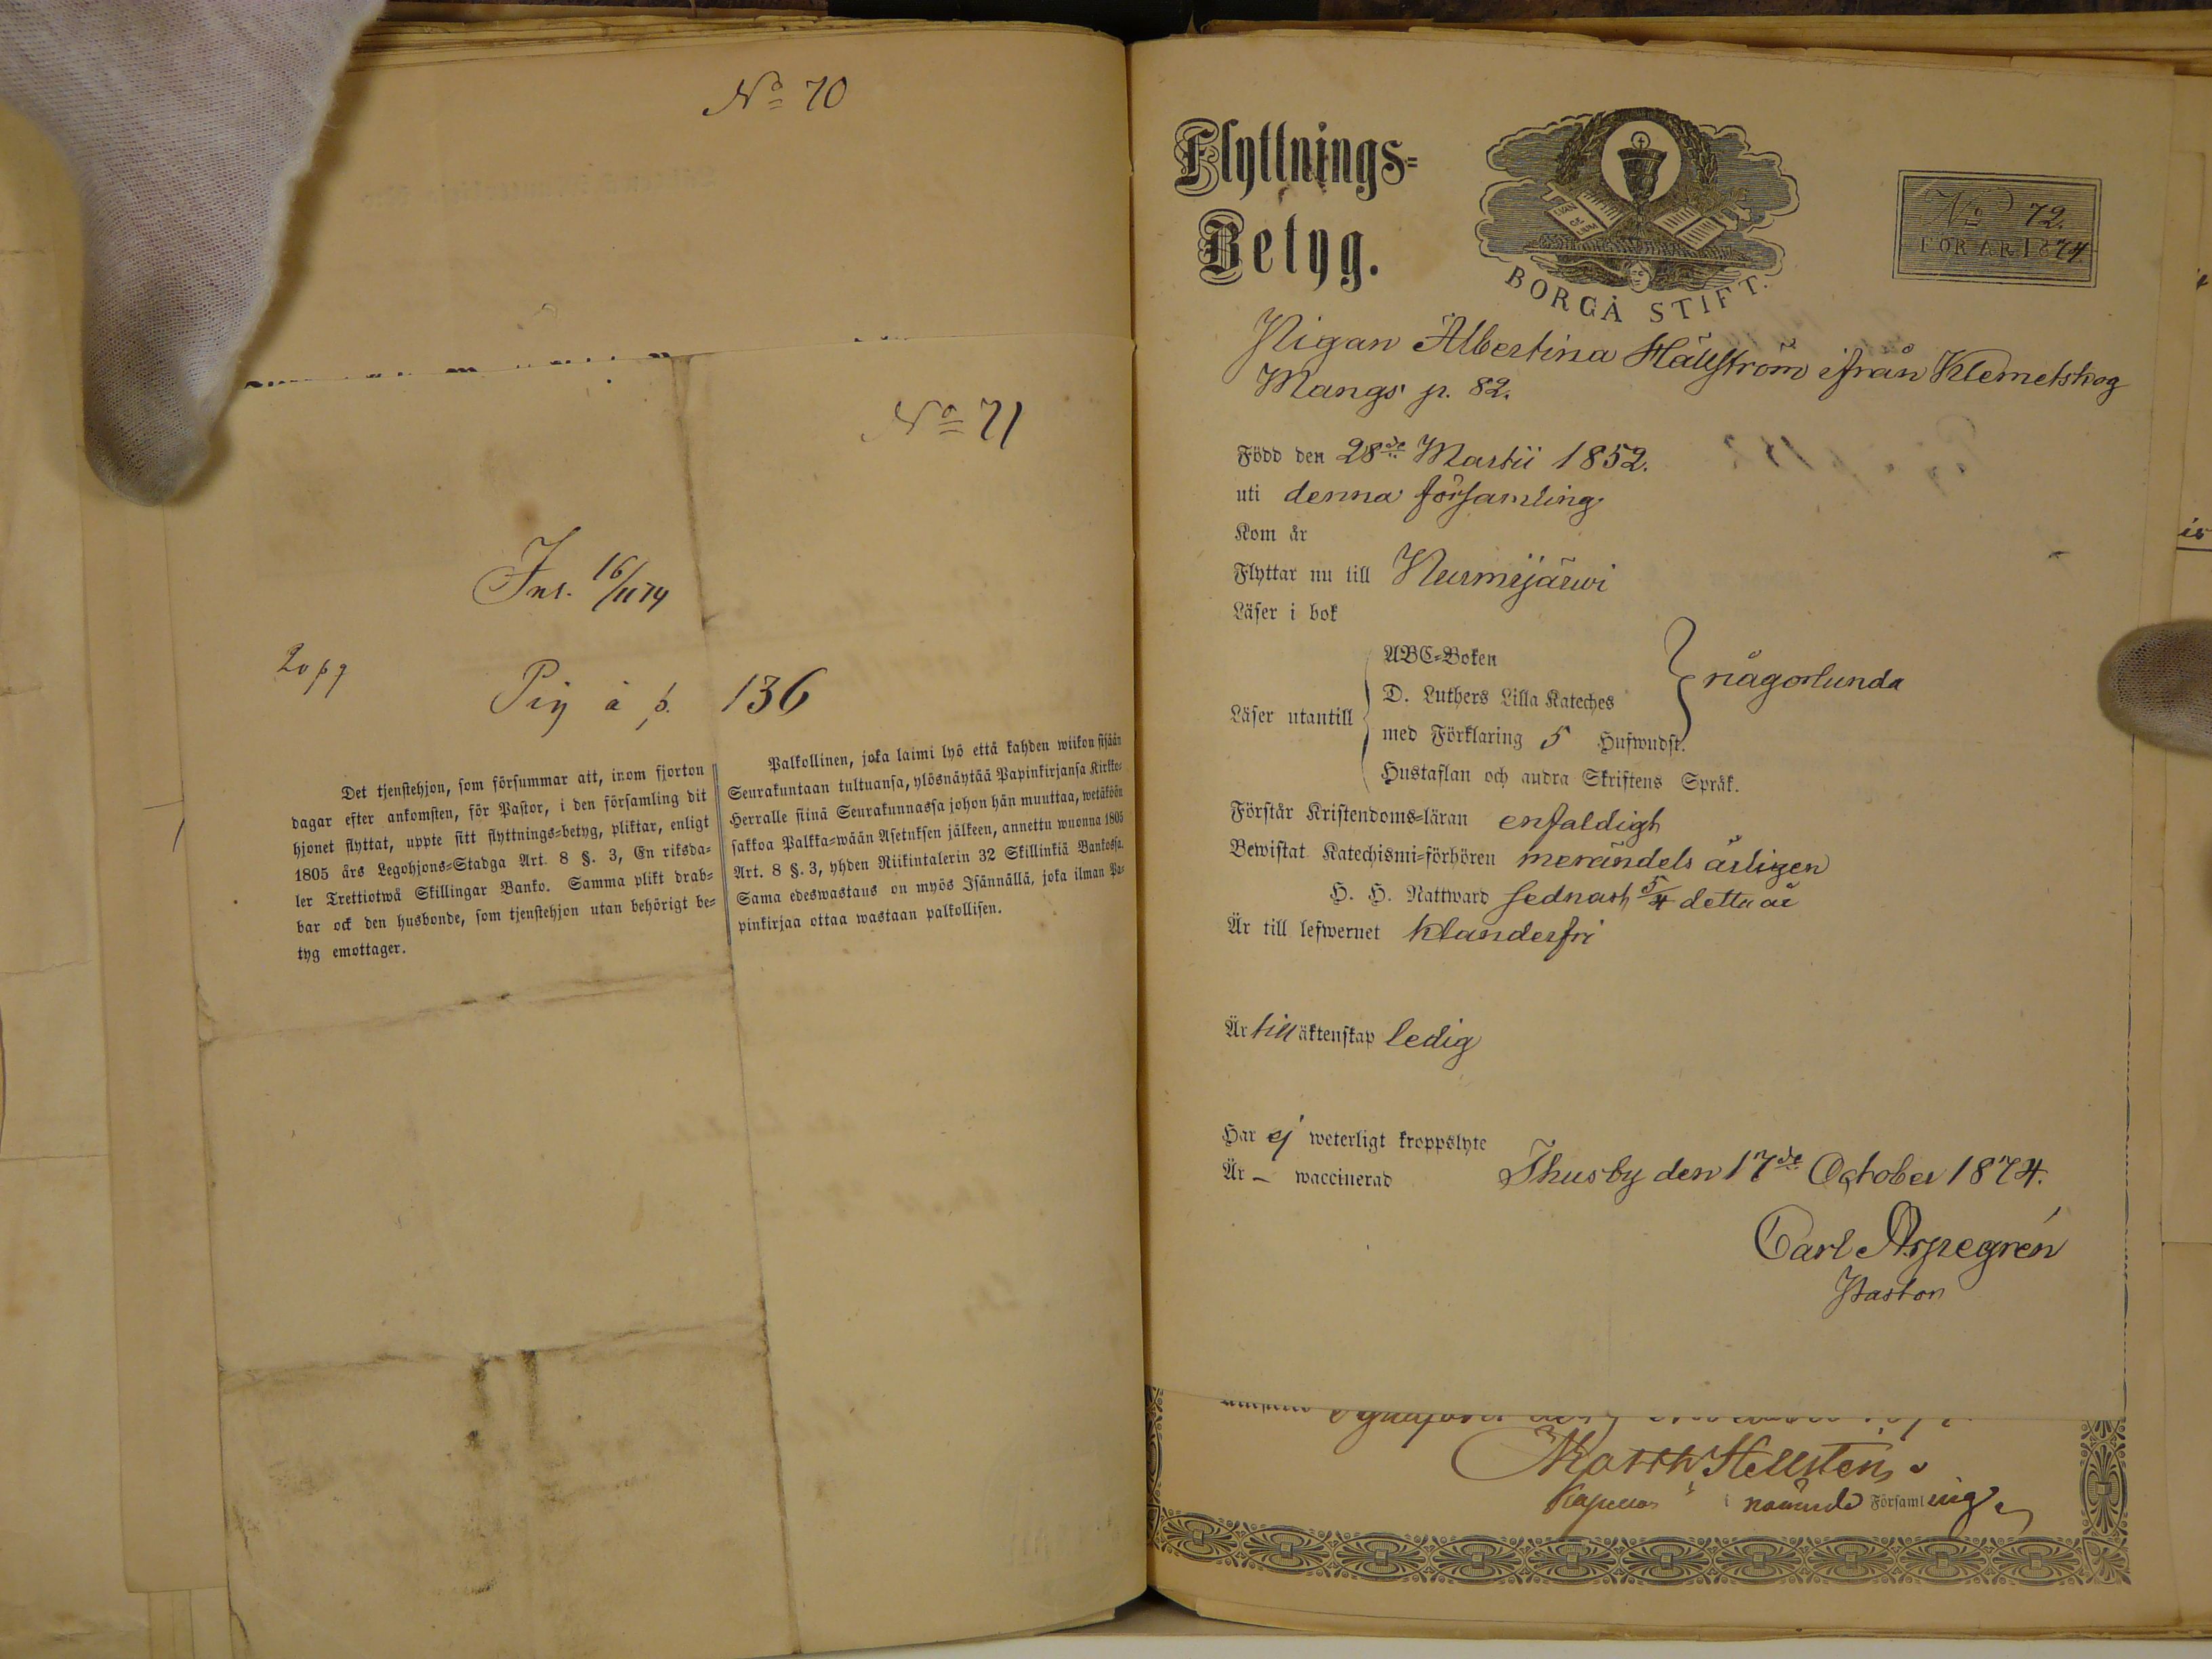 No 70
No 71
Inl. 16/11 74
20 p 7
Pig à p. 136
Det tjenstehjon, som försummar att, inom fjorton
dagar efter ankomsten, för Pastor, i den församling dit
hjonet flyttat, uppte sitt flyttnings=betyg, pliktar, enligt
1805 års Legohjons=Stadga Art. 8 §. 3, En riksda=
ler Trettiotwå Skillingar Banko. Samma plikt drab=
bar ock den husbonde, som tjenstehjon utan behörigt be=
tyg emottager.
Palkollinen, joka laimi lyö että kahden wiikon sisään
Seurakuntaan tultuansa, ylösnäyttää Papinkirjansa Kirkko=
Herralle siinä Seurakunnassa johon hän muuttaa, wetäköön
sakkoa Palkka=wään Asetuksen jälkeen, annettu wuonna 1805
Art. 8 §. 3, yhden Riikintalerin 32 Skillinkiä Bankossa.
Sama edeswastaus on myös Isännällä, joka ilman Pa=
pinkirjaa ottaa wastaan palkollisen.
Flyttnings=
Betyg.
BORGÅ STIFT.
No 72.
FÖR ÅR 1874
Pigan Albertina Hällström ifrån Klemetskog
Mangs p. 82.
Född den 28de Martii 1852.
uti denna församling
Kom år
Flyttar nu till Nurmijärwi
Läser i bok
Läser utantill
ABC=Boken
D. Luthers Lilla Kateches
med Förklaring 5 Hufwudst.
Hustaflan och andra Skriftens Språk.
någorlunda
Förstår Kristendoms=läran enfaldigt
Bewistat Katechismi=förhören merändels årligen
H. H. Nattward sednast 5/4 detta år
Är till lefwernet klanderfri
Är till äktenskap ledig
Har ej weterligt kroppslyte
Är – waccinerad
Thusby den 17de October 1874.
Carl Aspegrén
Pastor
Matth Hellsten
Kapellan i nämnde Församling